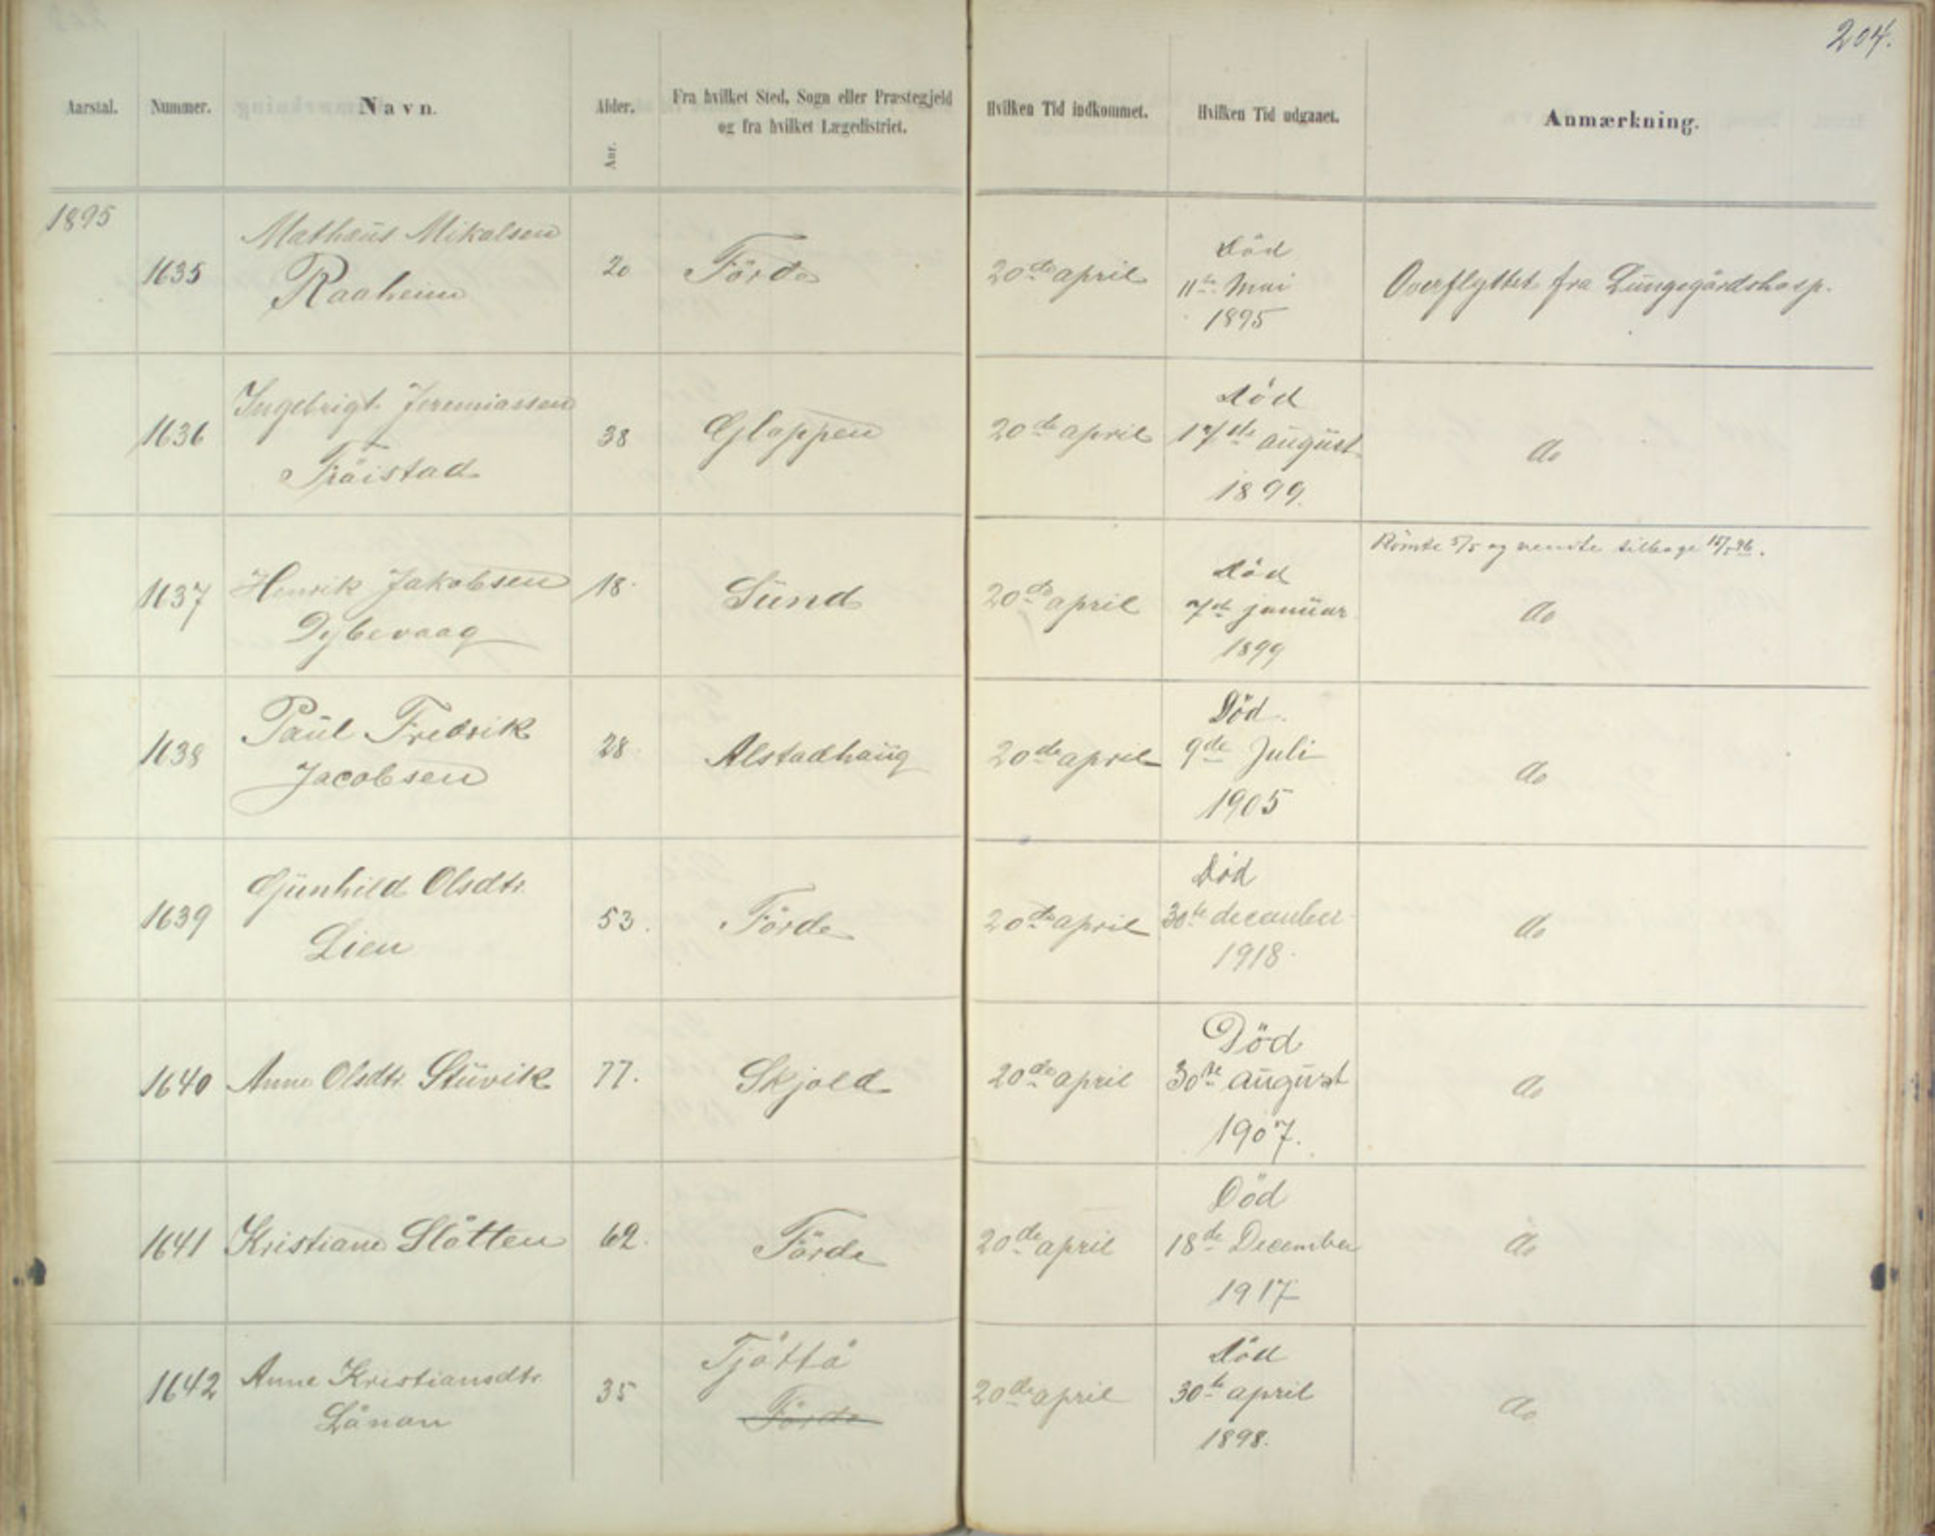 204.
Aarstal. Nummer. Navn. Alder. Fra hvilket Sted, Sogn eller Præstegjeld Hvilken Tid indkommet. Hvilken Tid udgaaet. Anmærkning.
og fra hvilket Lægedistrict.
Aar.
1895
Mathæus Mikalsen
Raaheim
1635 20 Förde 20de april
Död
11te Mai
1895
Overflyttet fra Lungegårdshosp.
Ingebrigt Jeremiassen
Tröistad
1636 38 Gloppen 20de april
död
17de august
1899.
do
Römte 5/5 og vendte tilbage 15/5 96.
1637 Henrik Jakobsen 18. Sund 20de april
Dybevaag
död
7de januar
1899
do
Paul Fredrik
Jacobsen
1638 28 Alstadhaug 20de april
Död.
9de Juli
1905
do
Gunhild Olsdtr.
Lien
1639 53. Förde 20de april
Död
30te december
1918.
do
1640 Anne Olsdtr. Stuvik 77. Skjold 20de april
Död
30te august
1907.
do
1641 Kristiane Slåtten 62. Förde 20de april
Död
18de December
1917
do
1642 Anne Kristiansdtr. 35 Tjöttå 20de april
Lånan Förde
död
30te april
1898.
do